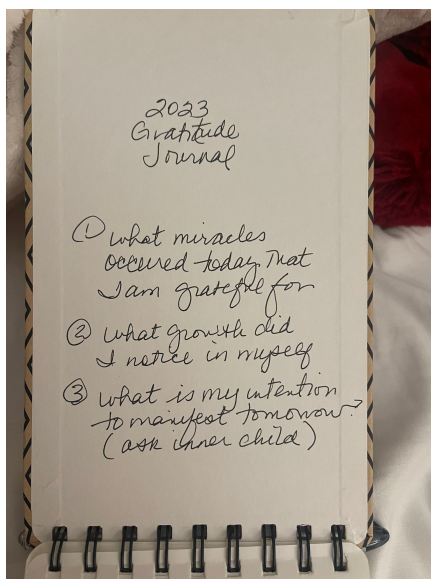 2023
Gratitude
Journal
① what miracles
occured today that
I am grateful for
② what growth did
I notice in myself
③ what is my intention
to manifest tomorrow?
(ask inner child)